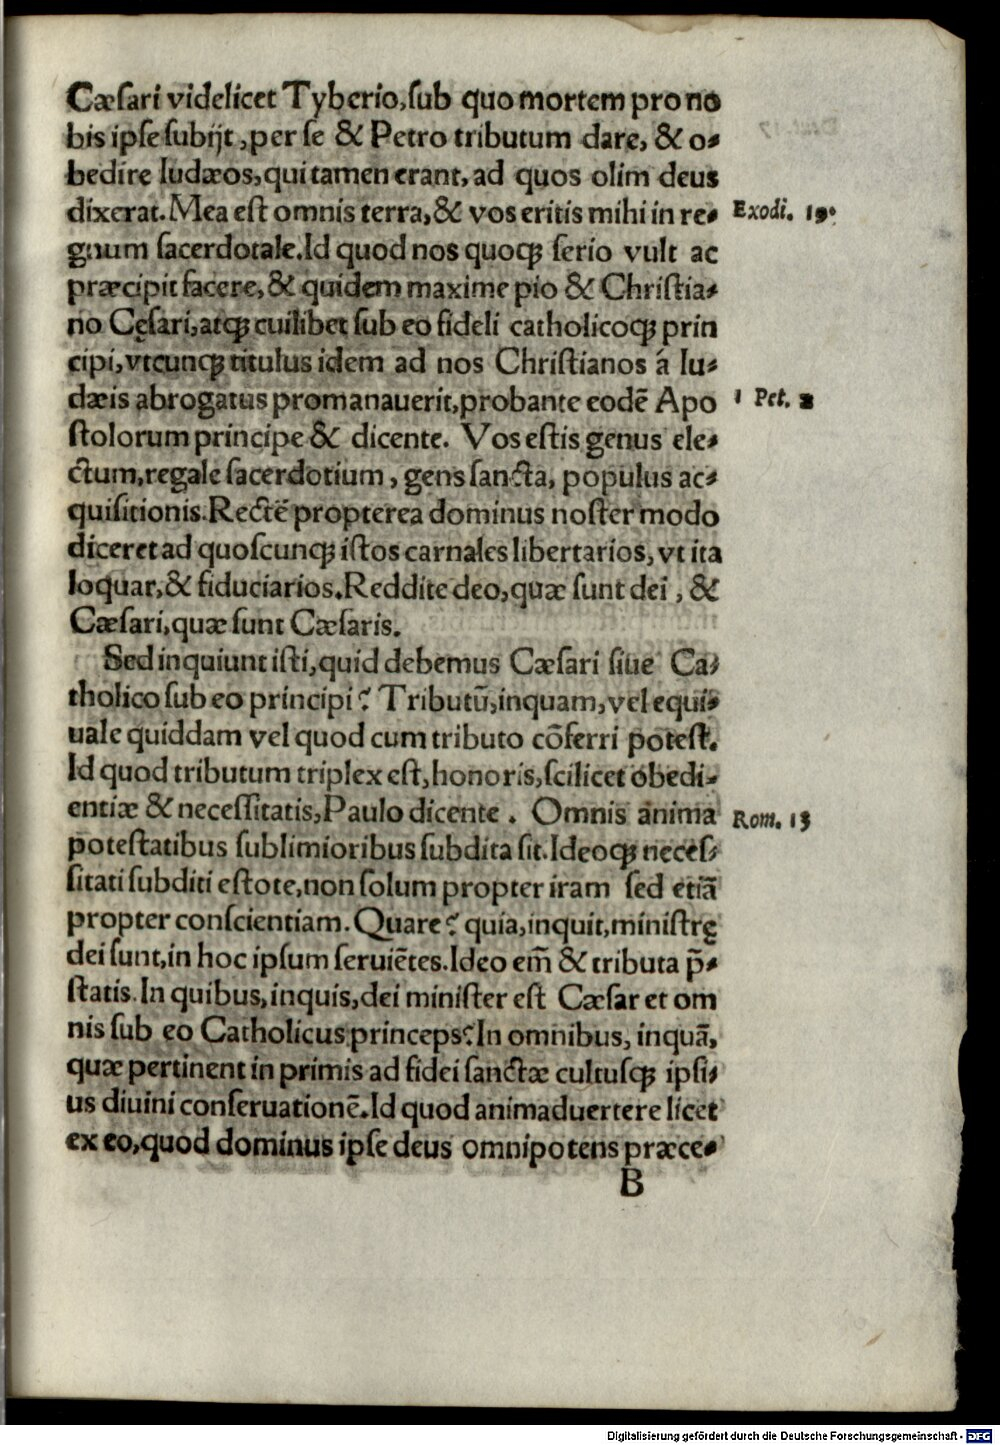 Cæſari videlicet Tyberio,ſub quo mortem pro no
bis ipſe ſubijt,per ſe & Petro tributum dare, & o⸗
bedire Iudæos,qui tamen erant,ad quos olim deus
dixerat.Mea eſt omnis terra,& vos eritis mihi in re⸗
Exodi. 19.
gnum ſacerdotale.Id quod nos quoq; ſerio vult ac
præcipit facere,& quidem maxime pio & Chriſtia⸗
no Cęſari,atq; cuilibet ſub eo fideli catholicoq; prin
cipi,vtcunq; titulus idem ad nos Chriſtianos á Iu⸗
dæis abrogatus promanauerit,probante eodē Apo
1 Pet. 2
ſtolorum principe & dicente. Vos eſtis genus ele⸗
ctum,regale ſacerdotium, gens ſancta, populus ac⸗
quiſitionis.Recte propterea dominus noſter modo
diceret ad quoſcunq; iſtos carnales libertarios, vt ita
loquar,& fiduciarios.Reddite deo,quæ ſunt dei, &
Cæſari,quæ ſunt Cæſaris.
Sed inquiunt iſti,quid debemus Cæſari ſiue Ca⸗
tholico ſub eo principi? Tributū,inquam,vel equi⸗
uale quiddam vel quod cum tributo cōferri poteſt.
Id quod tributum triplex eſt,honoris,ſcilicet obedi⸗
entiæ & neceſſitatis,Paulo dicente. Omnis anima
Rom. 13
poteſtatibus ſublimioribus ſubdita ſit.Ideoq; neceſ⸗
ſitati ſubditi eſtote,non ſolum propter iram ſed etiā
propter conſcientiam.Quare? quia,inquit,miniſtrę
dei ſunt,in hoc ipſum ſeruiētes.Ideo em̄ & tributa p̄⸗
ſtatis.In quibus,inquis,dei miniſter eſt Cæſar et om
nis ſub eo Catholicus princeps?In omnibus, inquā,
quæ pertinent in primis ad fidei ſanctæ cultuſq; ipſi⸗
us diuini conſeruationē.Id quod animaduertere licet
ex eo,quod dominus ipſe deus omnipotens præce⸗
B
Digitalisierung gefördert durch die Deutsche Forschungsgemeinschaft - DFG